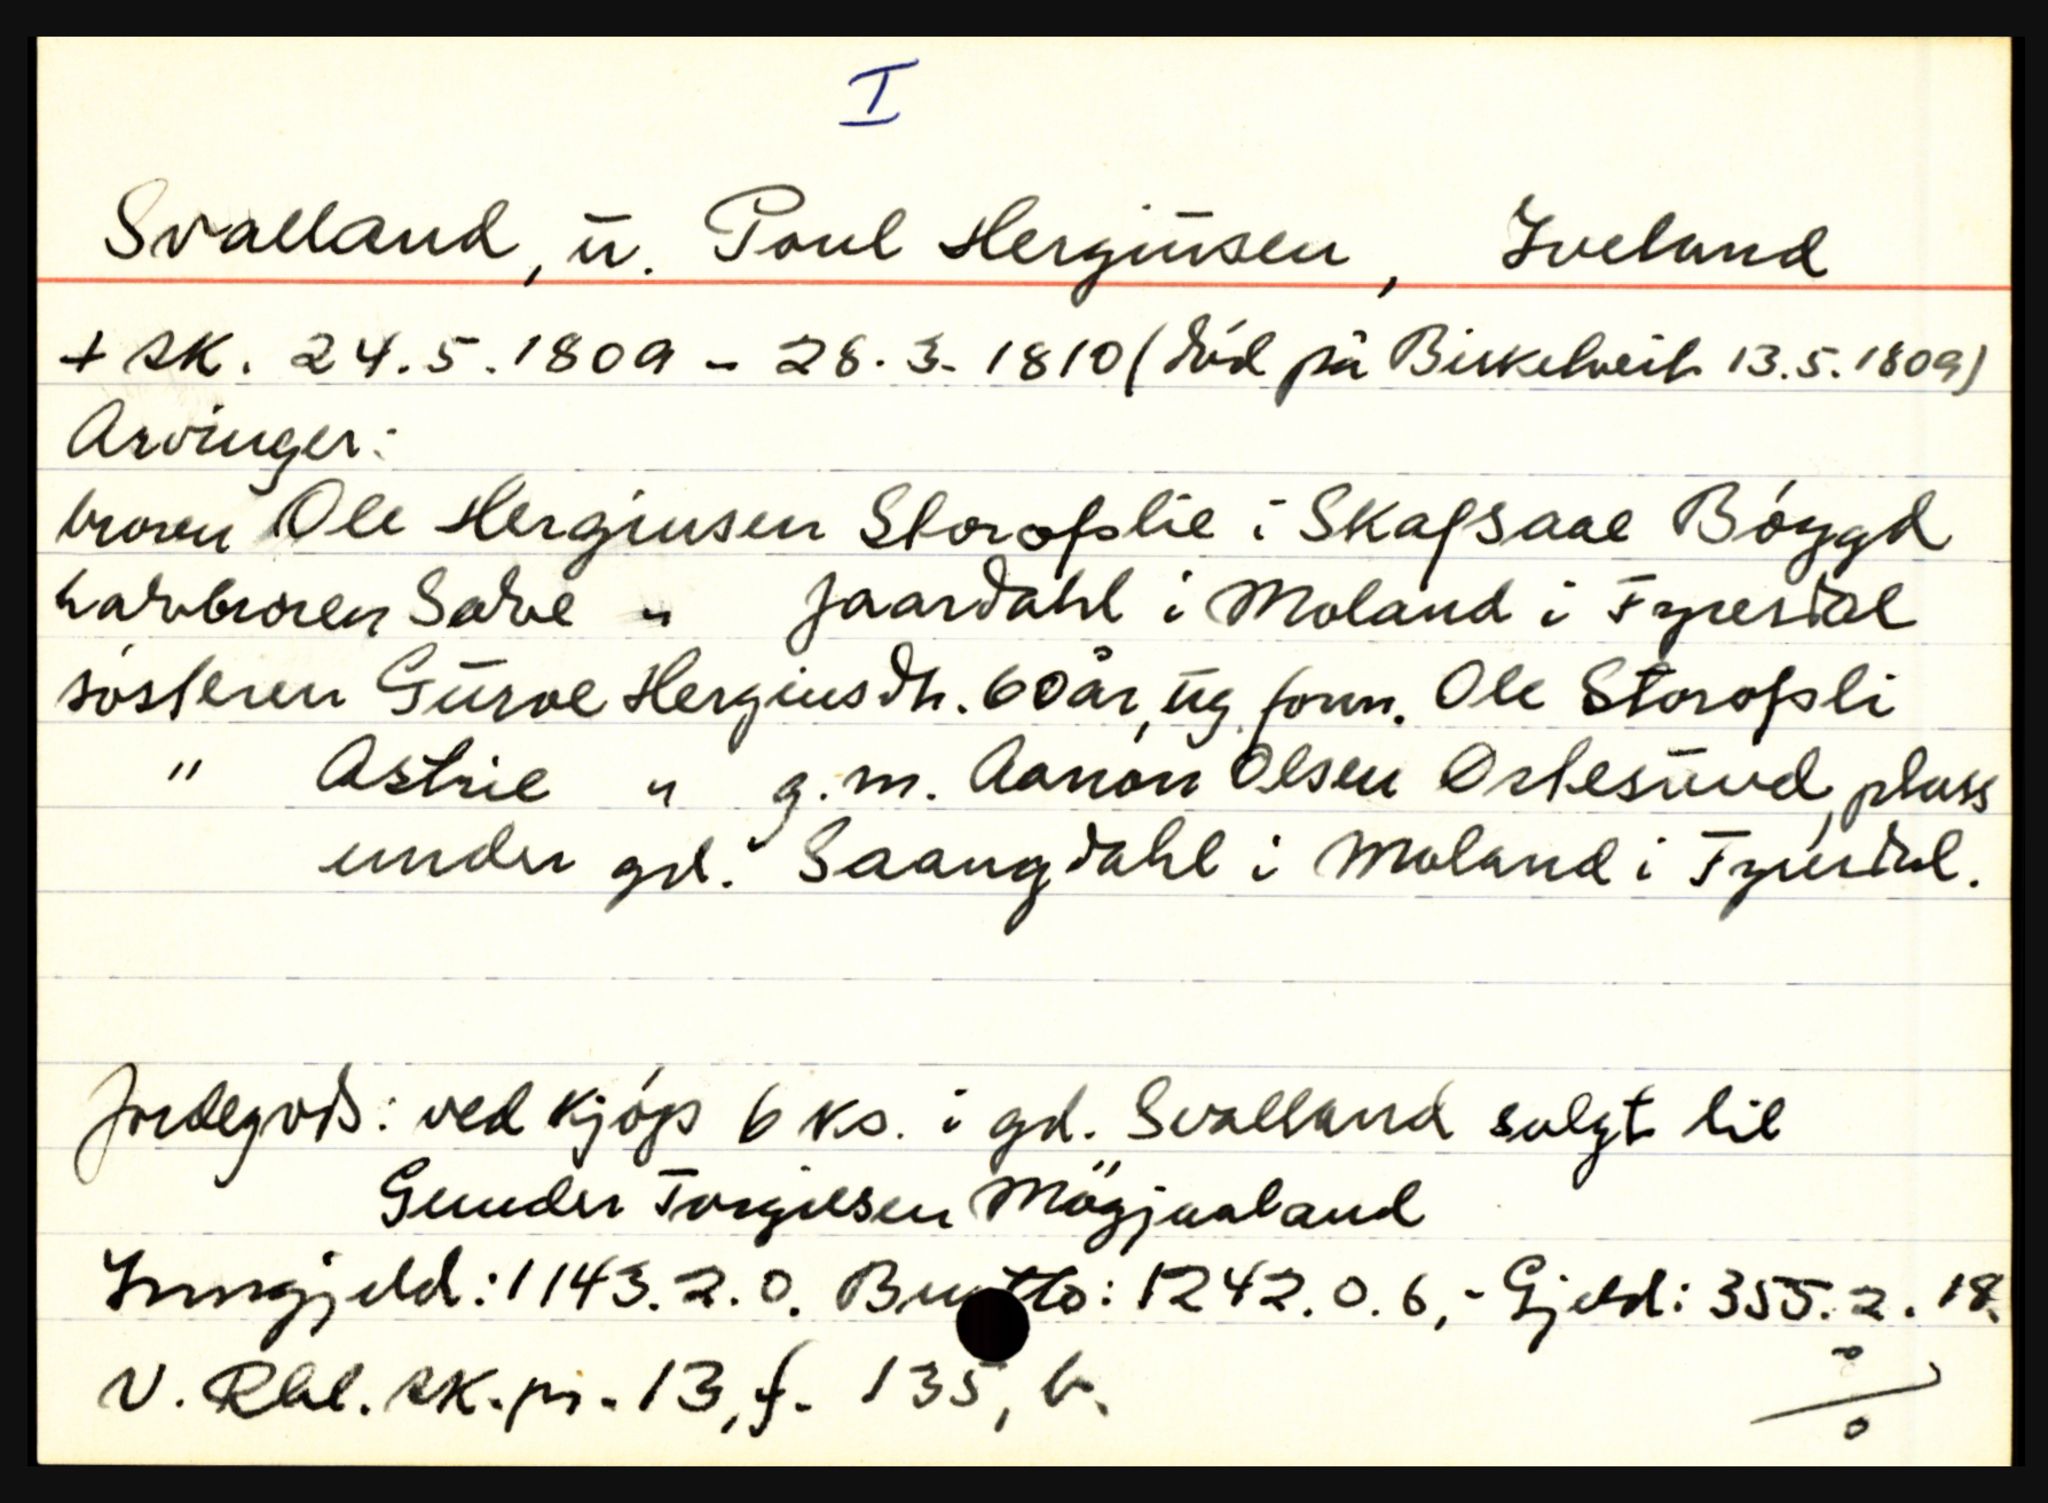 I
Svalland, u. Poul Herginsen, Iveland
+ sk. 24.5.1809 - 28.3.1810 (död på Birketveit 13.5.1809)
Arvinger:
broren Ole Herginsen Storofslie i Skafsaae Böygd
halvbroren Salve " Jaardahl i Moland i Fyresdal
sösteren Guroe Herginsdtr. 60 år, ug. form. Ole Storofsli
" Astrie " g.m. Aanon Olsen Ortesund, plass
under gd. Saangdahl i Moland i Fyresdal.
Jordegods: ved kjöp 6 ks. i gd. Svalland solgt til
Gunder Torgiusen Mögjaaland
Inngjeld: 1143.2.0. Brutto: 1242.0.6,- Gjeld: 355.2.18.
V. Rbl. sk.pr. 13, f. 135, b.